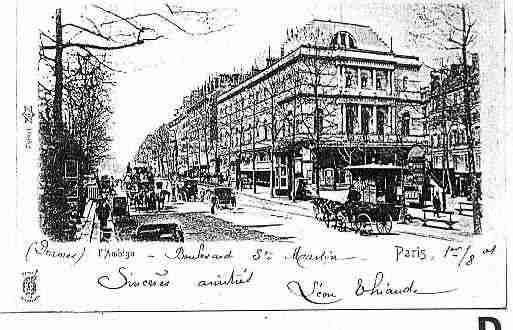 (Drames) l'Ambigu - Boulevard St Martin Paris, 1er/8 01
Sincères amitiés Léon Thiaude